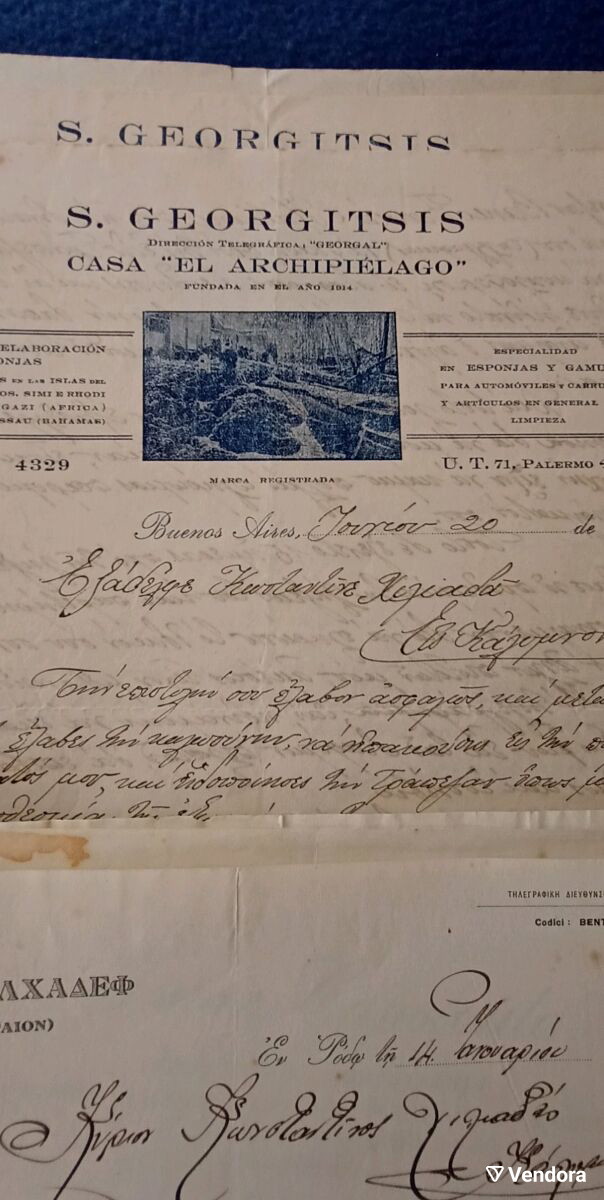 S. GEORGITSIS
S. GEORGITSIS
DIRECCIÓN TELEGRÁFICA: "GEORGAL"
CASA "EL ARCHIPIÉLAGO"
FUNDADA EN EL AÑO 1914
ELABORACIÓN
ONJAS
S EN LAS ISLAS DEL
OS, SIMI E RHODI
GAZI (AFRICA)
SSAU (BAHAMAS)
ESPECIALIDAD
EN ESPONJAS Y GAMU
PARA AUTOMÓVILES Y CARRU
Y ARTÍCULOS EN GENERAL
LIMPIEZA
4329
MARCA REGISTRADA
U. T. 71, PALERMO
Buenos Aires, Ιουνίου 20 de
Ἐξάδελφε Κωσταντῖνε Χιλιαδᾶ
Εἰς Κάλυμνον
Τὴν ἐπιστολήν σου ἔλαβον ἀσφαλῶς, καὶ μετα
ἔλαβες τὴν
μου, καὶ εἰδοποίησες τὴν Τράπεζαν ὅπως
ΤΗΛΕΓΡΑΦΙΚΗ ΔΙΕΥΘΥΝΣ
Codici: BENT
ΛΧΑΔΕΦ
ΑΙΟΝ)
Ἐν Ῥόδῳ τῇ 14 Ἰανουαρίου
Κύριον Κωνσταντῖνος
Vendora